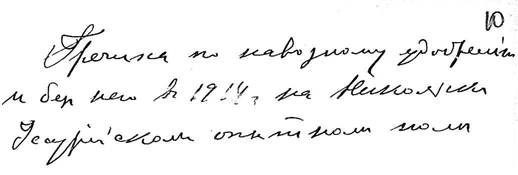 10
Гречиха по навозному удобренію
и без него въ 1914 г. на Никольск
Уссурійском опытном поле